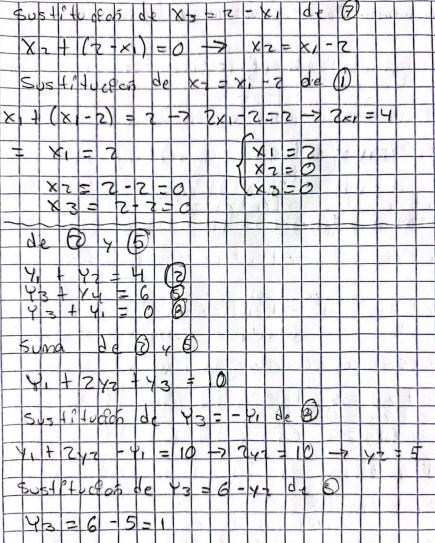 Sustitución de x3 = 2 - x1 de ②
x2 + (2 - x1) = 0 → x2 = x1 - 2
Sustitución de x2 = x1 - 2 de ①
x1 + (x1 - 2) = 2 → 2x1 - 2 = 2 → 2x1 = 4
= x1 = 2
x2 = 2 - 2 = 0
x3 = 2 - 2 = 0
{ x1 = 2
x2 = 0
x3 = 0
de ② y ⑤
y1 + y2 = 4 ②
y3 + y4 = 6 ⑤
y3 + y1 = 0 ⑧
Suma de ② y ⑤
y1 + 2y2 + y3 = 10
Sustitución de y3 = -y1 de ⑧
y1 + 2y2 - y1 = 10 → 2y2 = 10 → y2 = 5
Sustitución de y3 = 6 - y2 de ⑤
y3 = 6 - 5 = 1